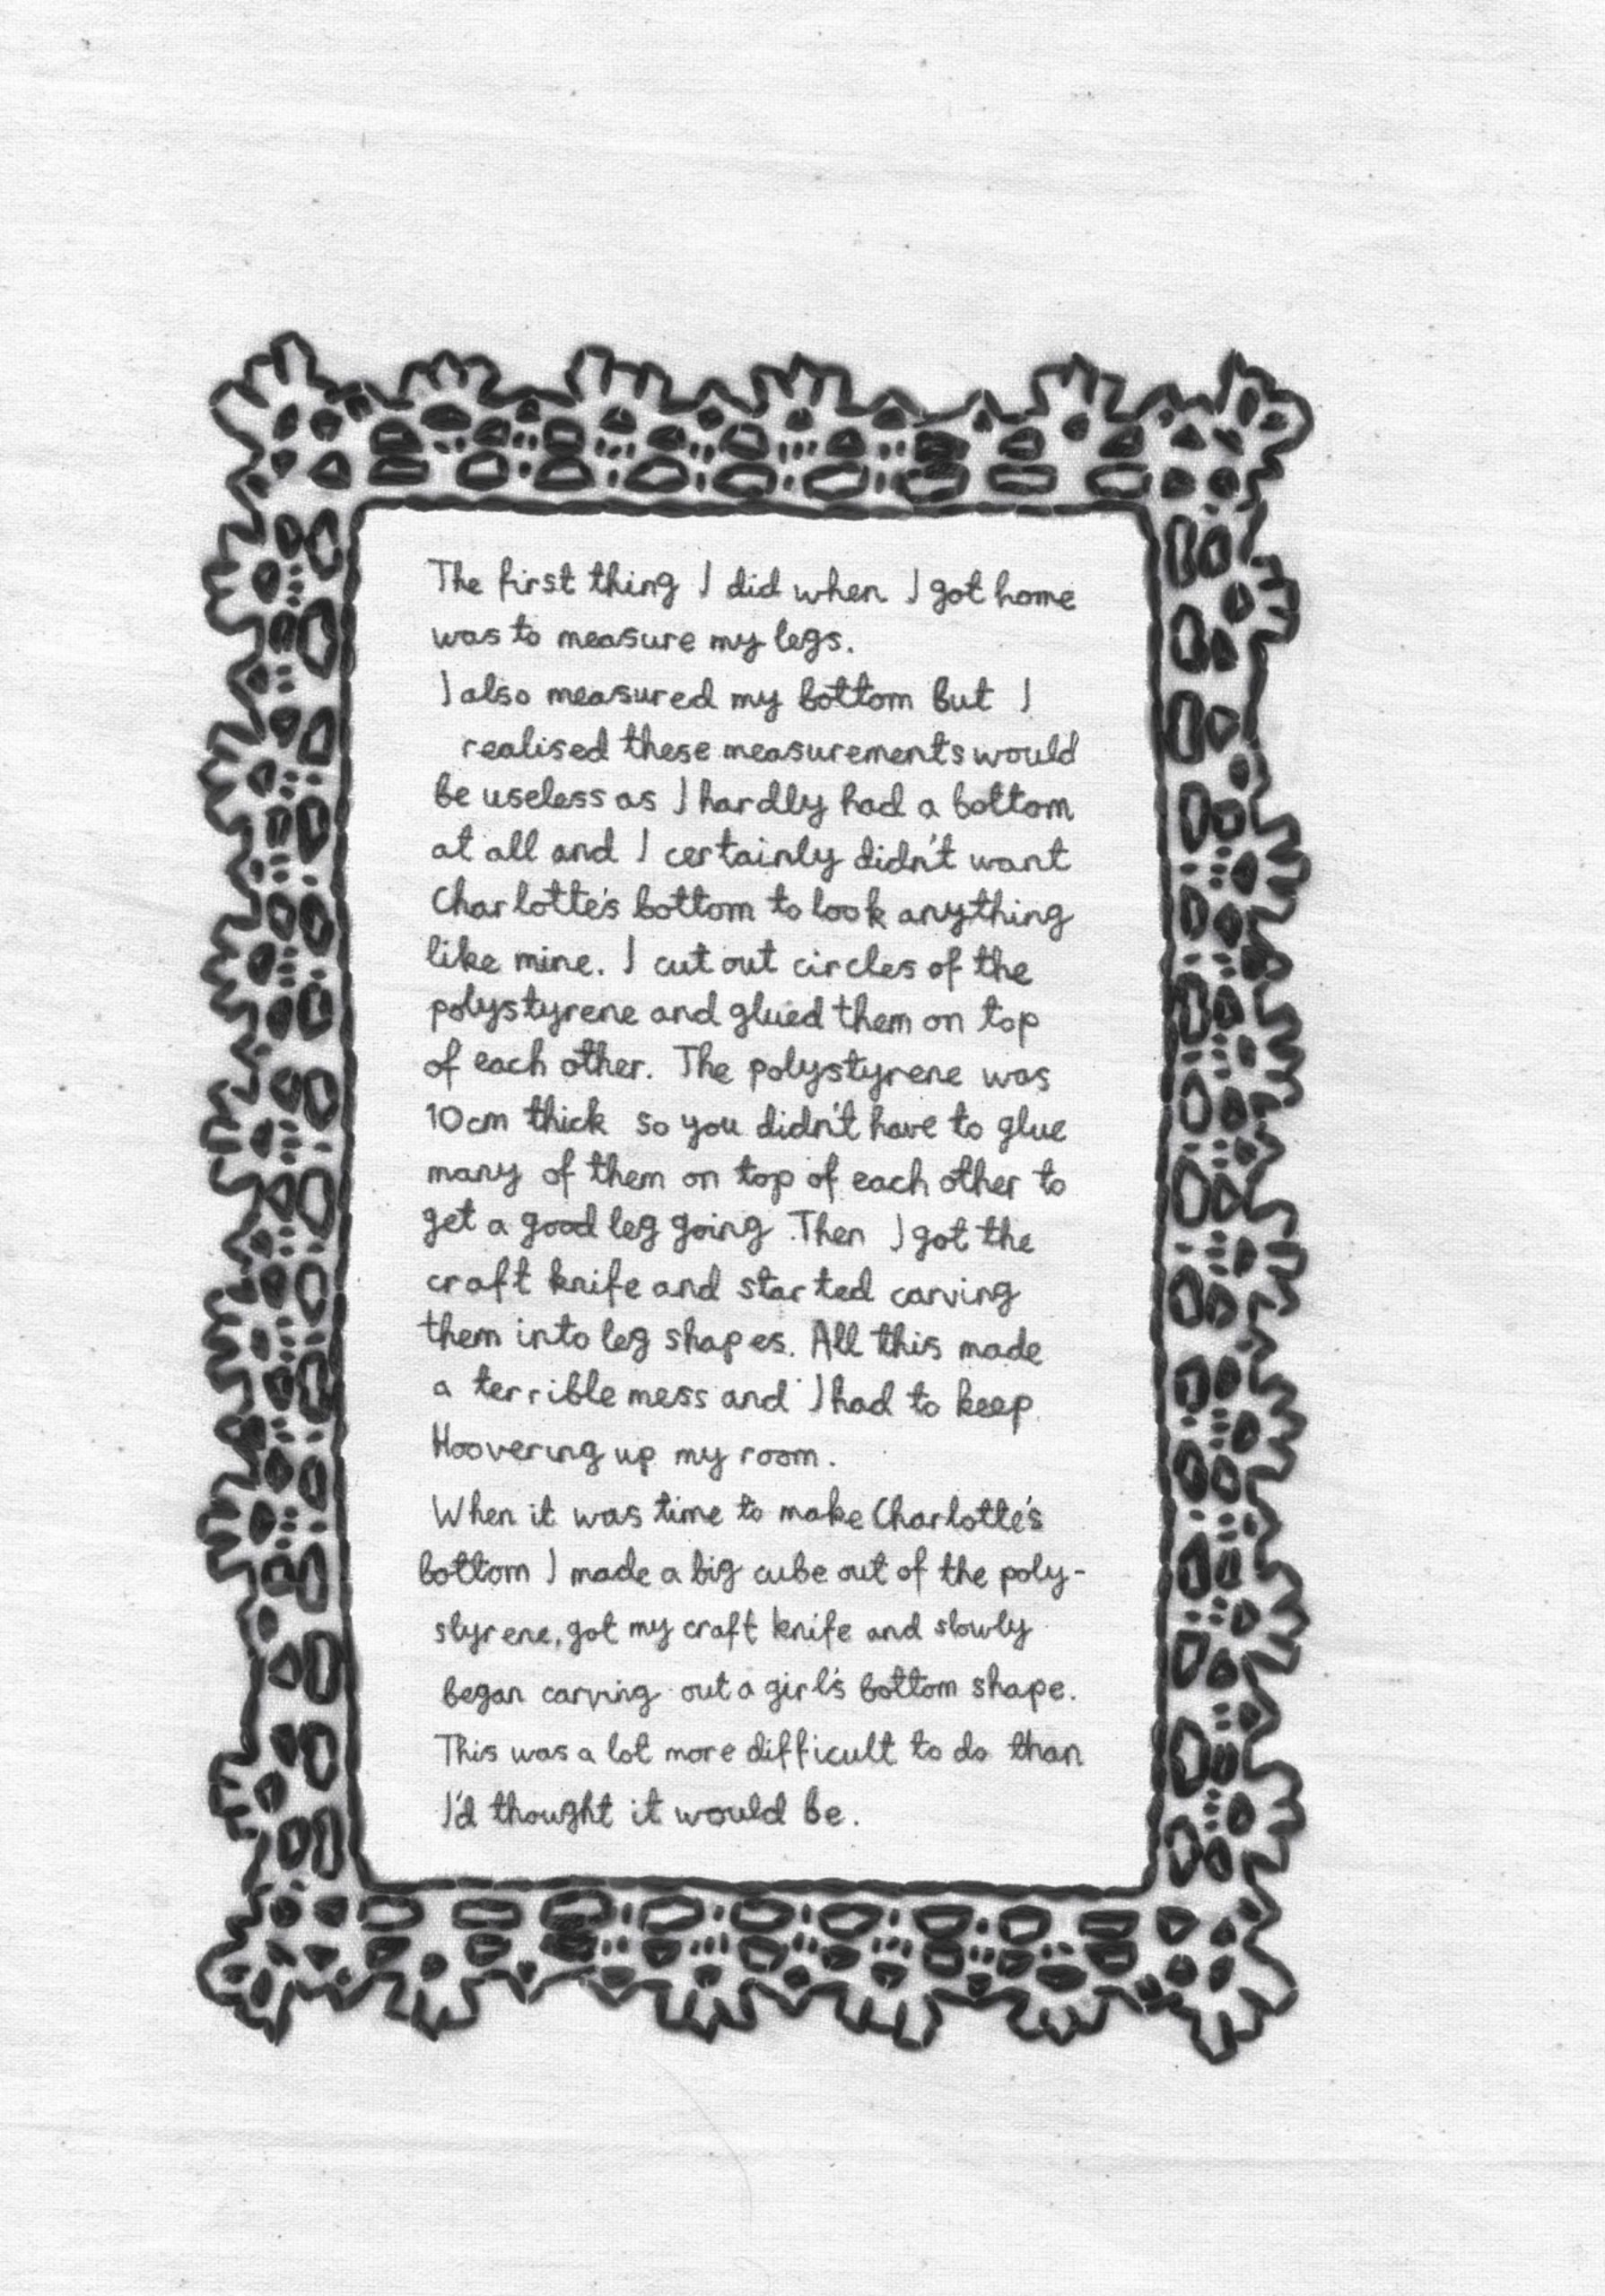 The first thing I did when I got home
was to measure my legs.
I also measured my bottom but I
realised these measurements would
be useless as I hardly had a bottom
at all and I certainly didn't want
Charlotte's bottom to look anything
like mine. I cut out circles of the
polystyrene and glued them on top
of each other. The polystyrene was
10cm thick so you didn't have to glue
many of them on top of each other to
get a good leg going. Then I got the
craft knife and started carving
them into leg shapes. All this made
a terrible mess and I had to keep
Hoovering up my room.
When it was time to make Charlotte's
bottom I made a big cube out of the poly-
styrene, got my craft knife and slowly
began carving out a girl's bottom shape.
This was a lot more difficult to do than
I'd thought it would be.